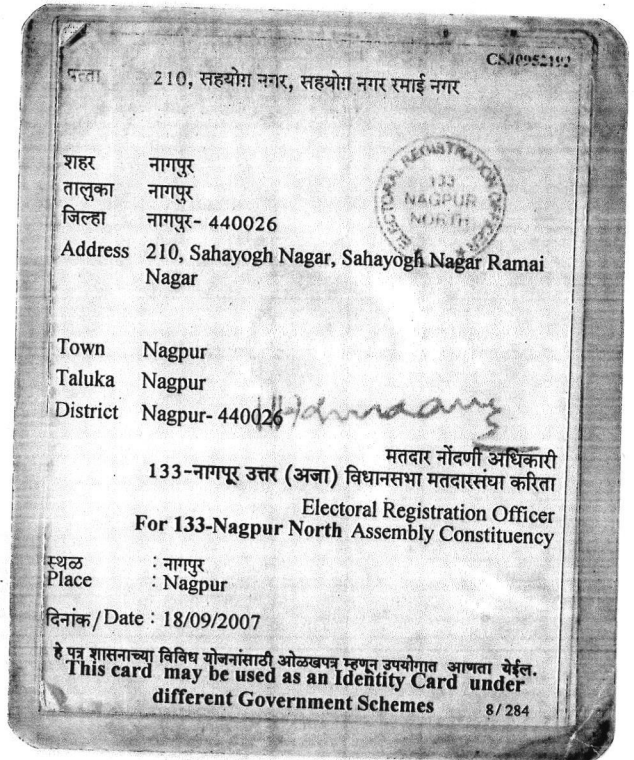 CSJ0952192
पत्ता 210, सहयोग़ नगर, सहयोग़ नगर रमाई नगर
ELECTORAL REGISTRATION OFFICER
133
NAGPUR
NORTH
शहर नागपुर
तालुका नागपुर
जिल्हा नागपुर- 440026
Address 210, Sahayogh Nagar, Sahayogh Nagar Ramai
Nagar
Town Nagpur
Taluka Nagpur
District Nagpur- 440026
मतदार नोंदणी अधिकारी
133-नागपूर उत्तर (अजा) विधानसभा मतदारसंघा करिता
Electoral Registration Officer
For 133-Nagpur North Assembly Constituency
स्थळ : नागपुर
Place : Nagpur
दिनांक/Date : 18/09/2007
हे पत्र शासनाच्या विविध योजनांसाठी ओळखपत्र म्हणून उपयोगात आणता येईल.
This card may be used as an Identity Card under
different Government Schemes 8/284